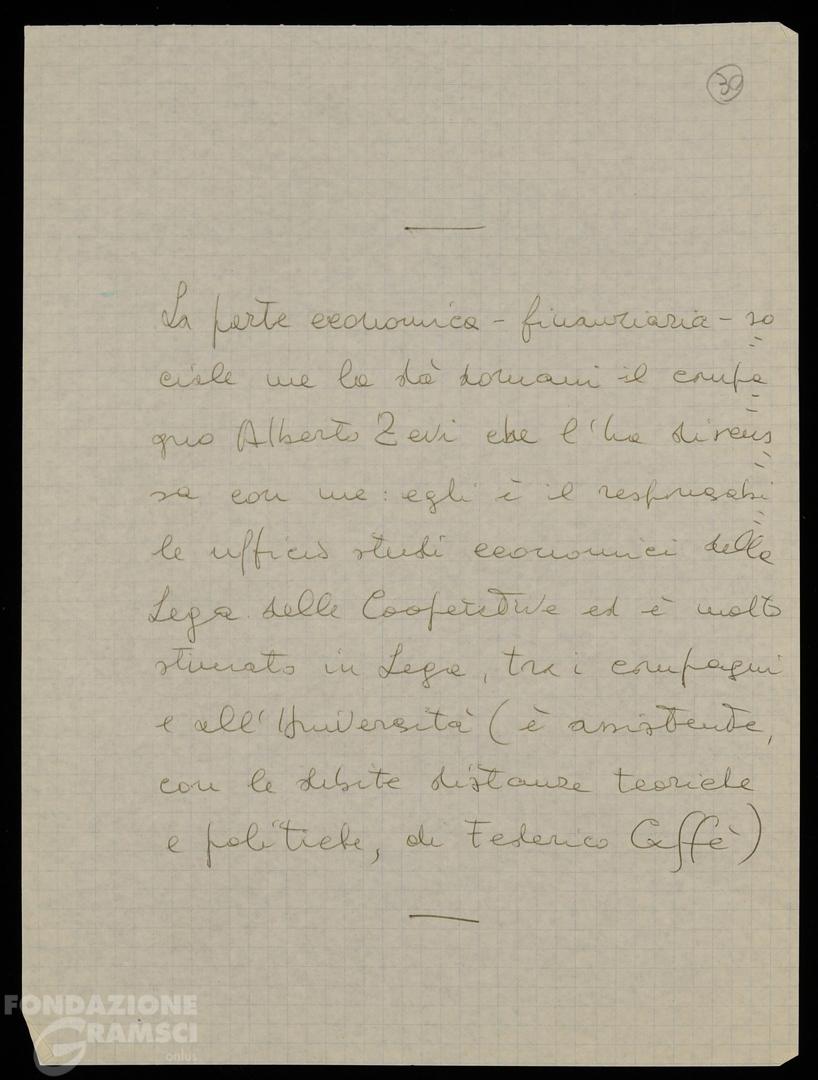 30
La parte economica - finanziaria - so
ciale me la dà domani il compa
gno Alberto Zevi che l'ha discus
sa con me: egli è il responsabi
le ufficio studi economici della
Lega delle Cooperative ed è molto
stimato in Lega, tra i compagni
e all'Università (è assistente,
con le debite distanze teoriche
e politiche, di Federico Caffè)
FONDAZIONE
GRAMSCI
onlus